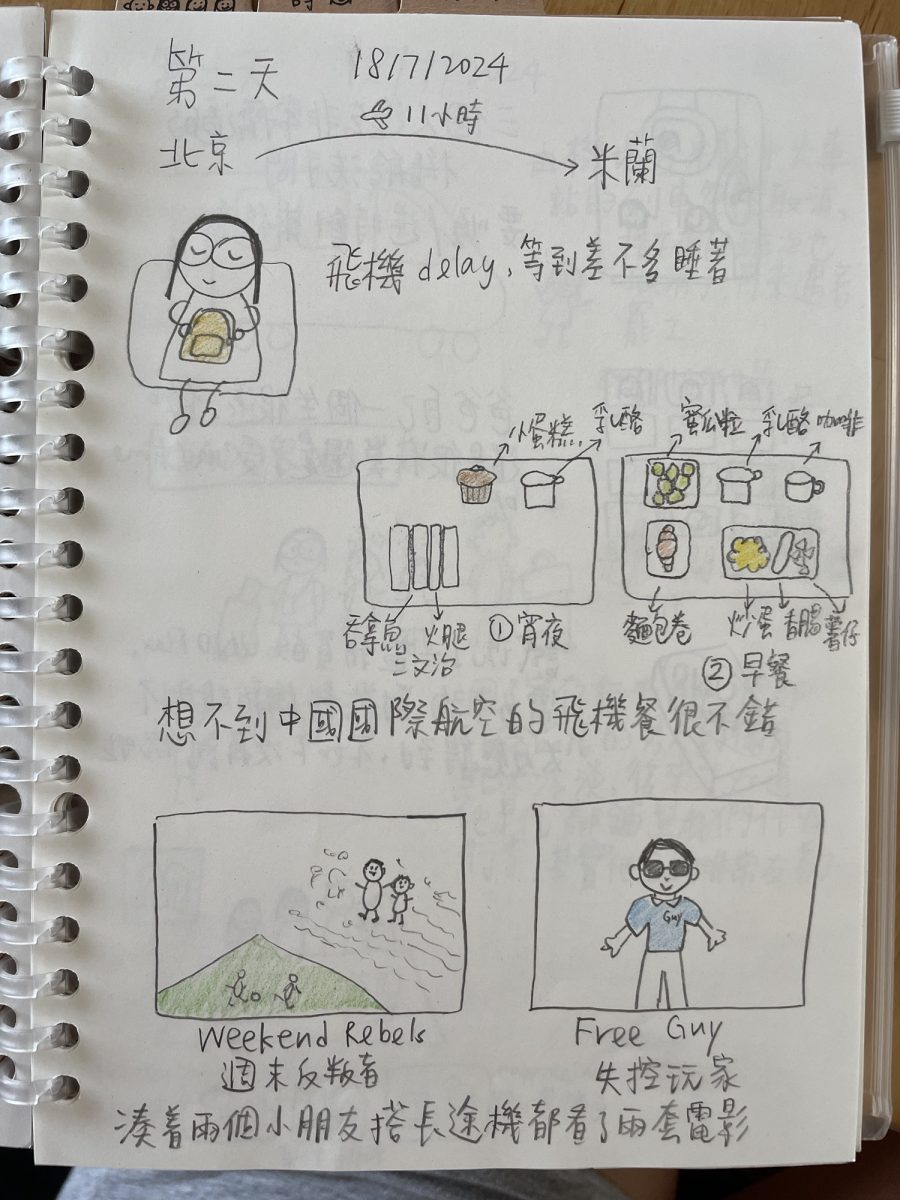 第二天 18/7/2024
11小時
北京 米蘭
飛機 delay, 等到差不多睡著
小蛋糕 乳酪
蜜瓜粒 乳酪 咖啡
吞拿魚 火腿
三文治
①宵夜
麵包卷 炒蛋 香腸 薯仔
②早餐
想不到中國國際航空的飛機餐很不錯
Guy
Weekend Rebels
週末反叛者
Free Guy
失控玩家
湊着兩個小朋友搭長途機都看了兩套電影